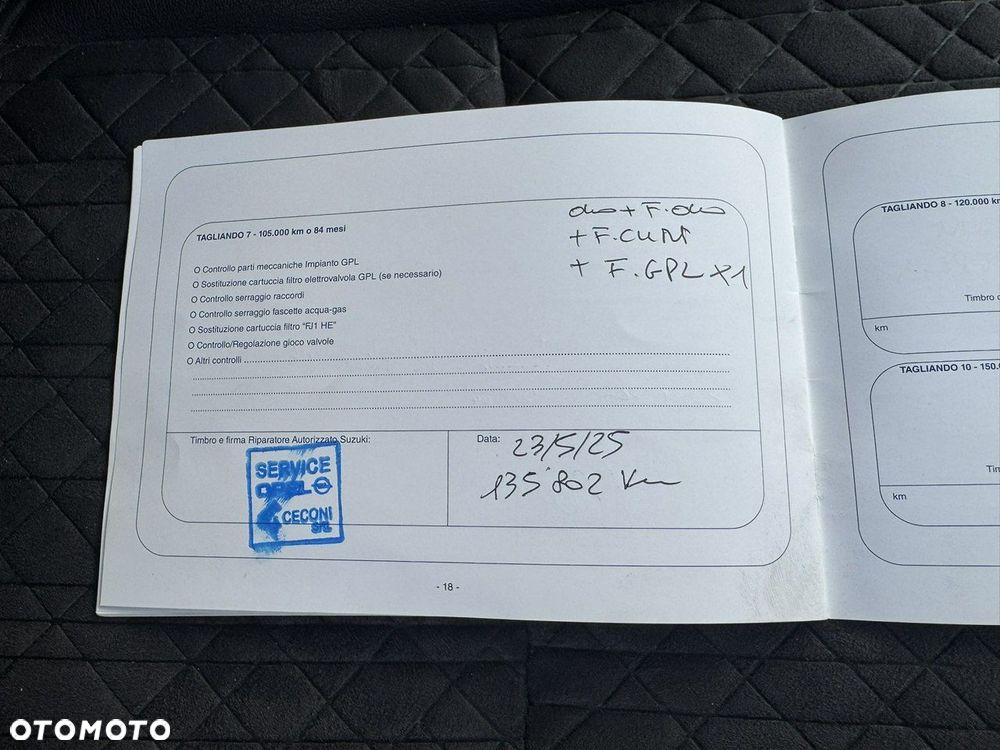 TAGLIANDO 7 - 105.000 km o 84 mesi
olio + F. olio
+ F. CLIM
+ F. GPL x1
O Controllo parti meccaniche Impianto GPL
O Sostituzione cartuccia filtro elettrovalvola GPL (se necessario)
O Controllo serraggio raccordi
O Controllo serraggio fascette acqua-gas
O Sostituzione cartuccia filtro "FJ1 HE"
O Controllo/Regolazione gioco valvole
O Altri controlli
Timbro e firma Riparatore Autorizzato Suzuki:
SERVICE
OPEL
CECONI
SRL
Data: 23/5/25
135802 Km
- 18 -
TAGLIANDO 8 - 120.000 km
Timbro
km
TAGLIANDO 10 - 150.
km
OTOMOTO